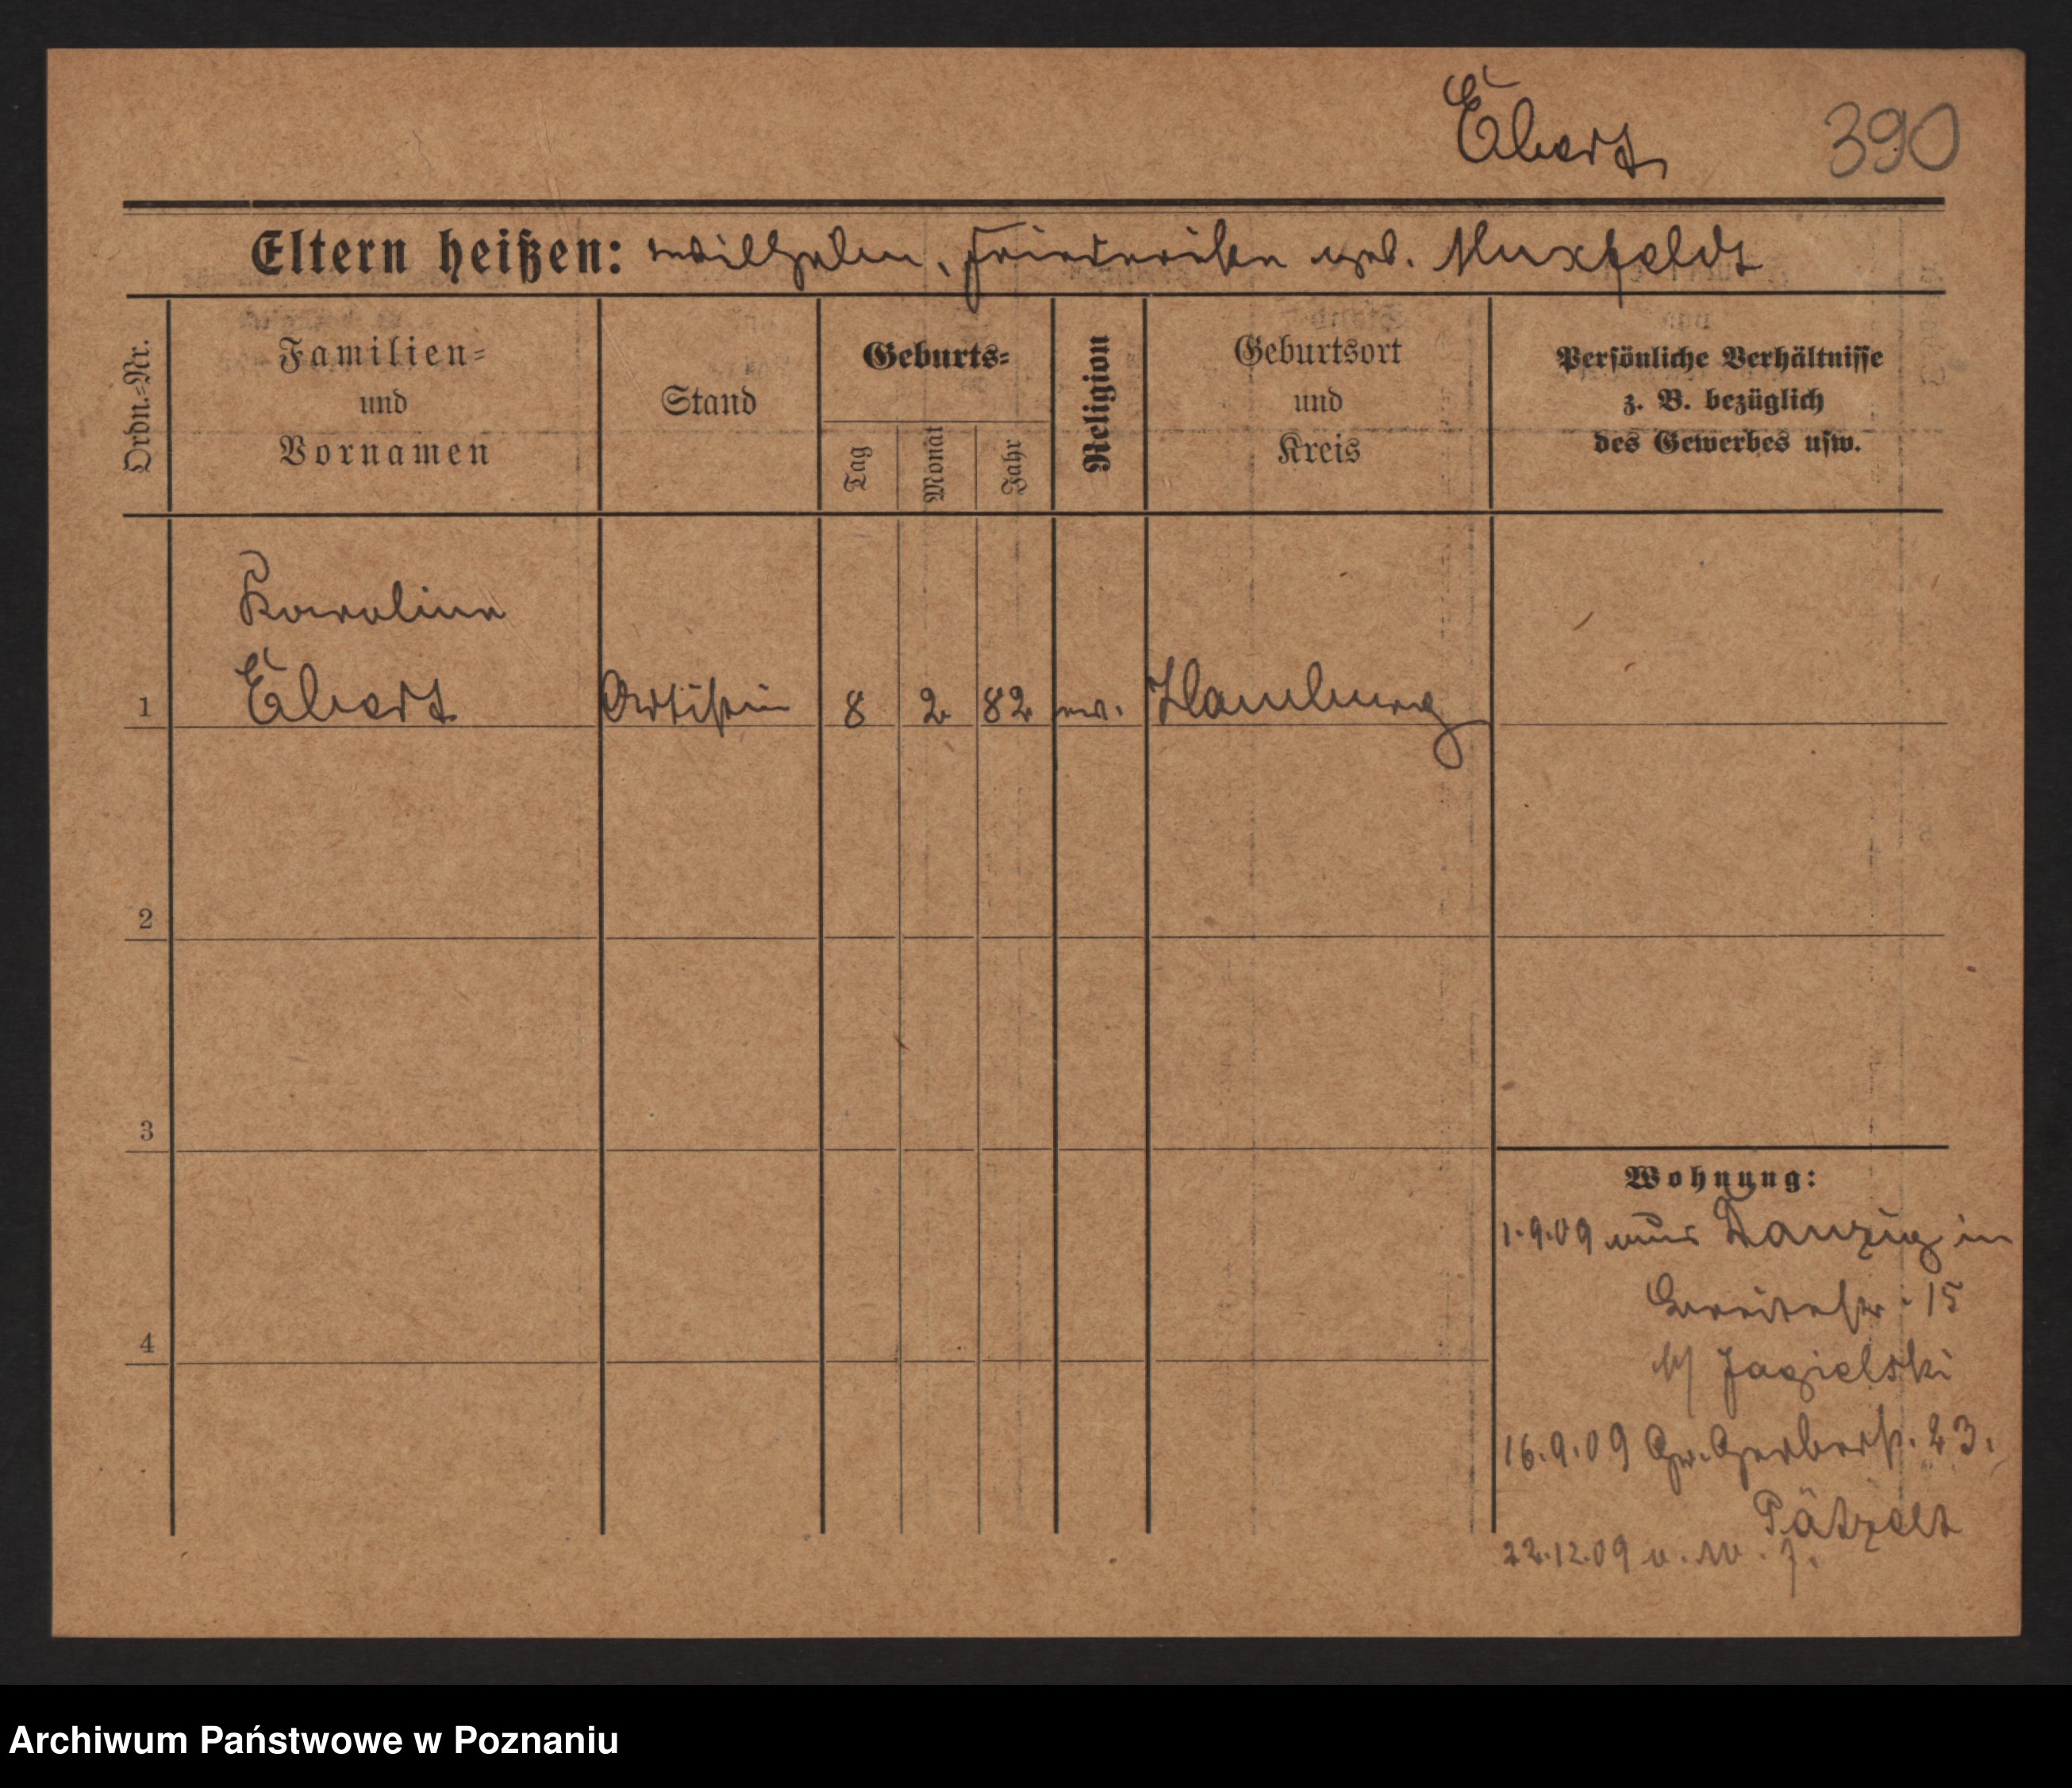 Ebert 390
Eltern heißen: Wilhelm, Friederike geb. Muxfeldt
Ordn.=Nr.
Familien=
und
Vornamen
Stand
Geburts=
Tag
Monat
Jahr
Religion
Geburtsort
und
Kreis
Persönliche Verhältnisse
z. B. bezüglich
des Gewerbes usw.
Karoline
1 Ebert Artistin 8 2 82 ev. Hamburg
2
3
4
Wohnung:
1.9.09 aus Danzig in
Breitestr. 15
b/ Jagielski
16.9.09 Gr. Gerberstr. 23.
Pätzelt
22.12.09 u. W. f.
Archiwum Państwowe w Poznaniu